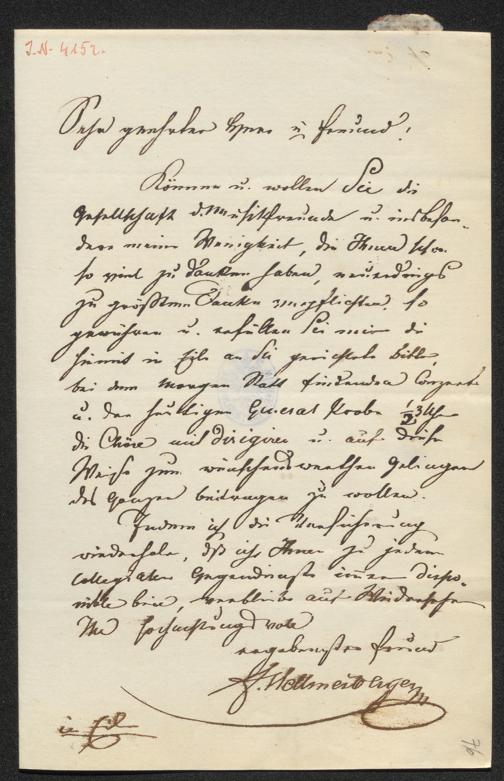 I.N. 4152.
Sehr geehrter Herr u. Freund!
Können u. wollen Sie die
Gesellschaft d. Musikfreunde u. insbeson-
dere meine Wenigkeit, die Ihnen schon
so viel zu danken haben, neuerdings
zu größtem Danke verpflichten, so
gewähren u. erfüllen Sie mir die
hiemit in Eile an Sie gerichtete Bitte,
bei dem morgen Statt findenden Conzerte
u. der heutigen General Probe ½3 Uhr
die Chöre mit dirigiren u. auf diese
Weise zum wünschenswerthen Gelingen
des Ganzen beitragen zu wollen.
Indem ich die Versicherung
wiederhole, daß ich Ihnen zu jedem
collegialen Gegendienste immer dispo-
nible bin, verbleibe auf Wiedersehen
Ihr hochachtungsvoll
ergebenster Freund
J. Hellmesberger
in Eile
76